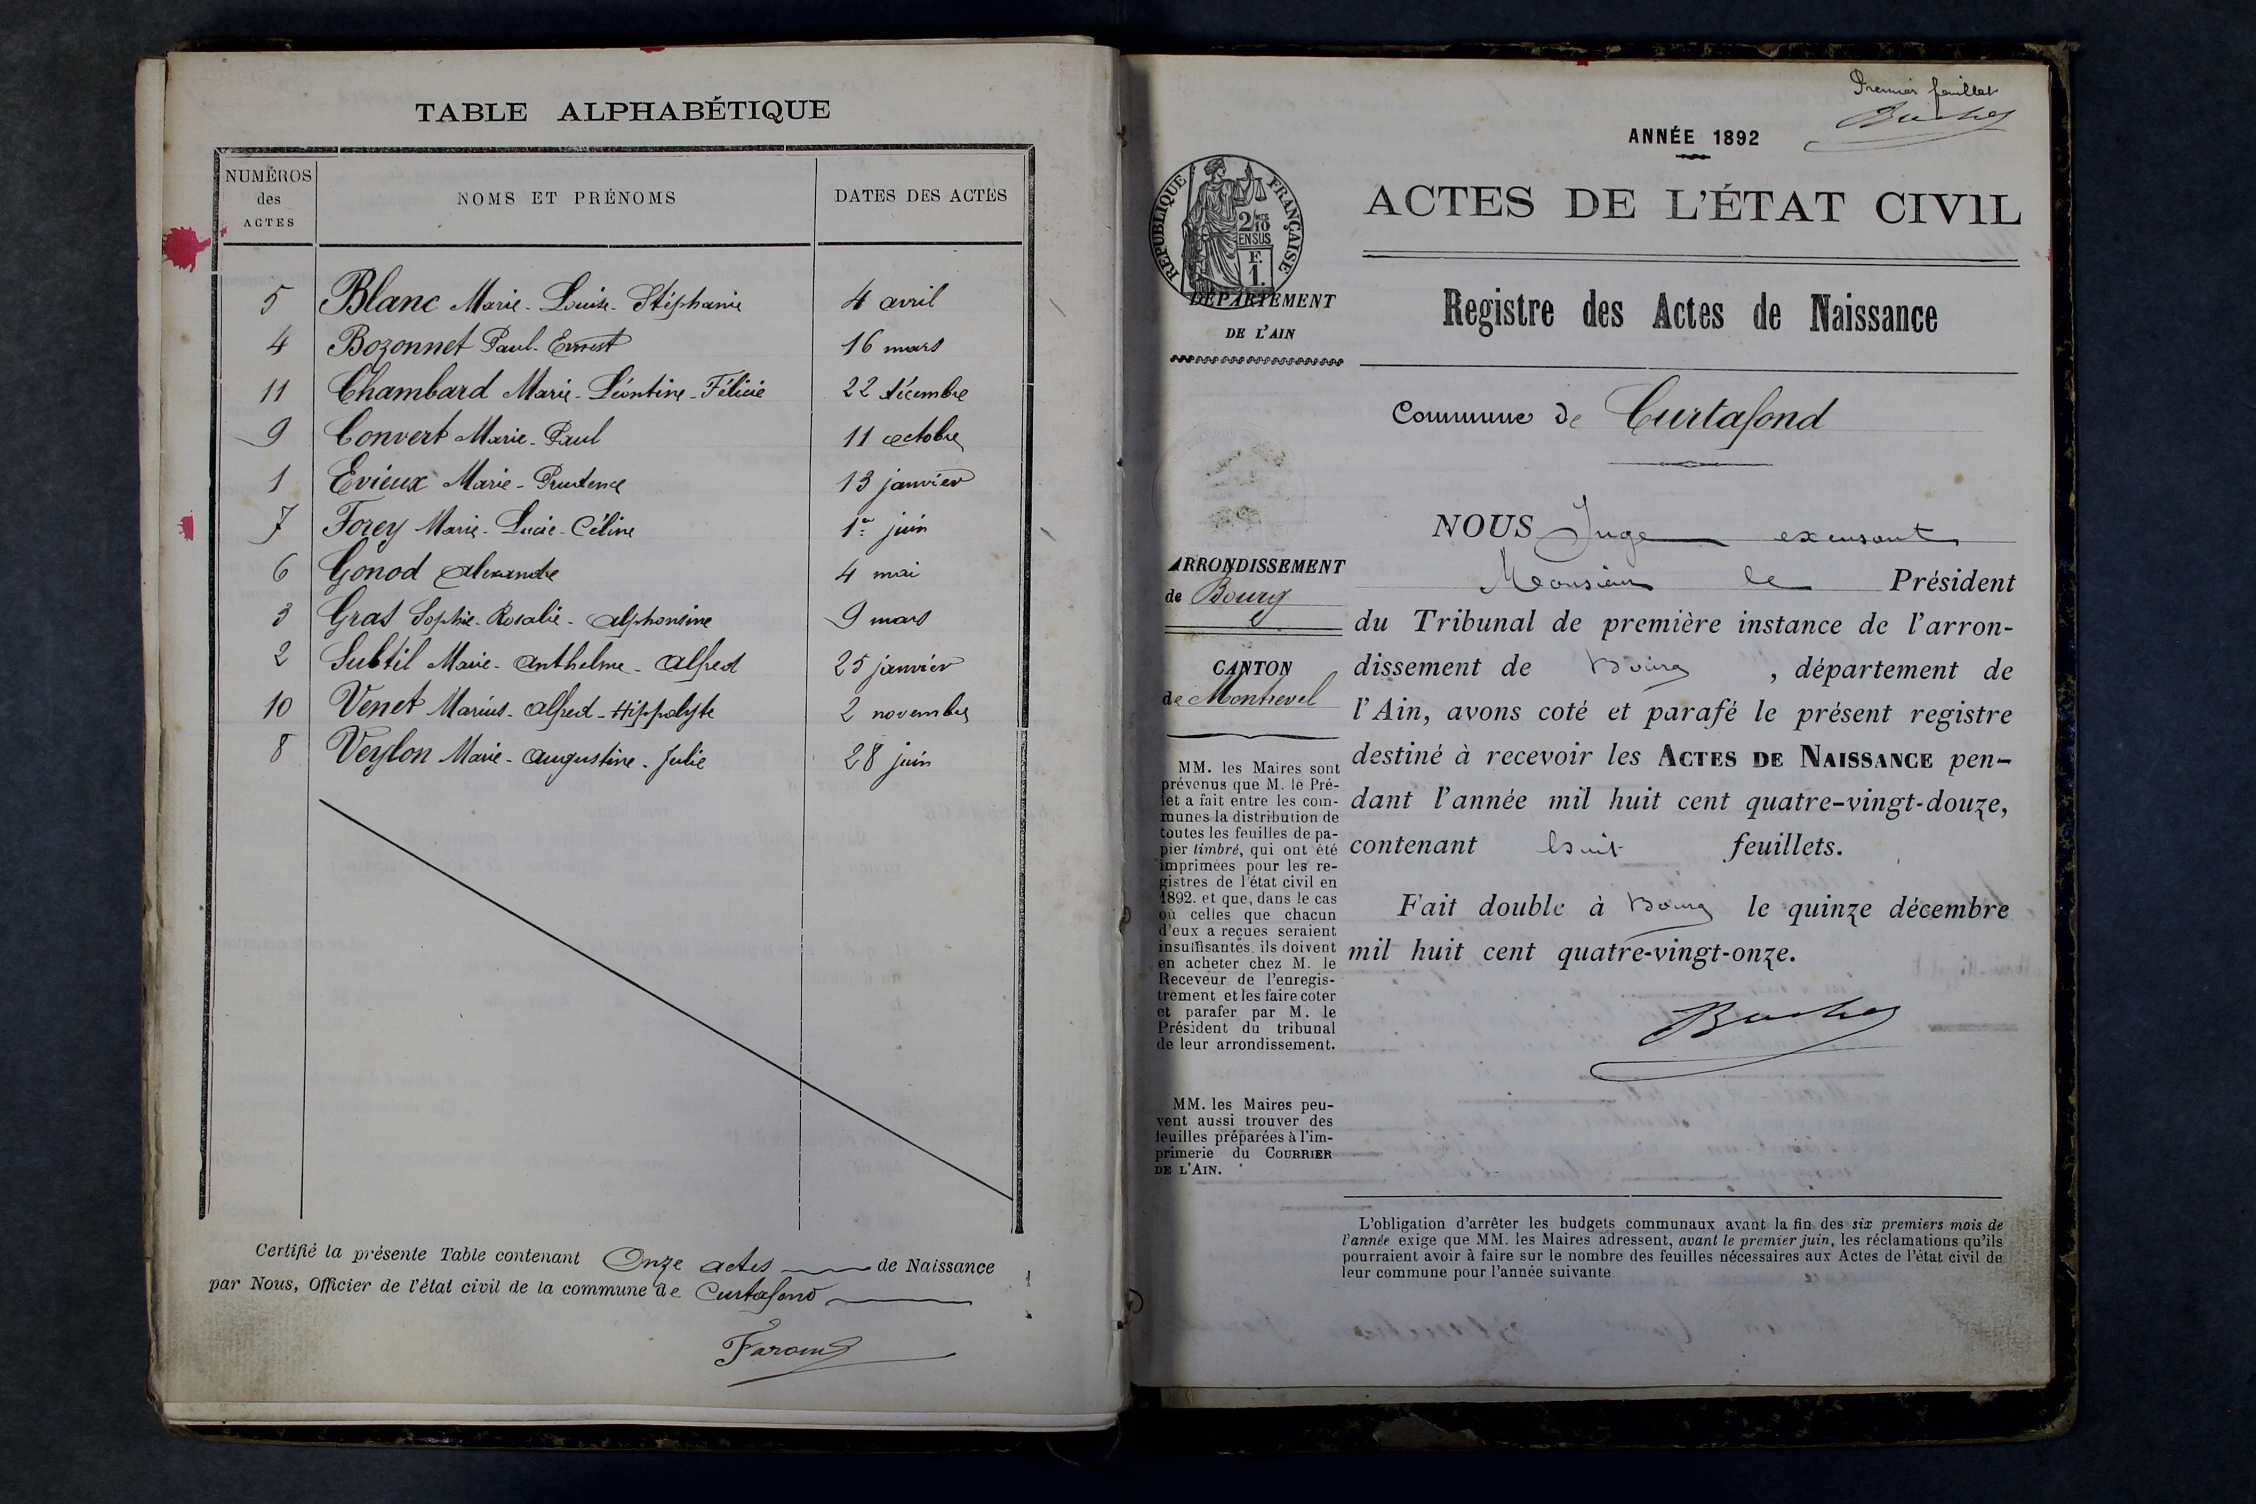 TABLE ALPHABÉTIQUE
NUMÉROS des ACTES
NOMS ET PRÉNOMS
DATES DES ACTES
5 Blanc Marie-Louise-Stéphanie 4 avril
4 Bozonnet Paul-Ernest 16 mars
11 Chambard Marie-Léontine-Félicie 22 décembre
9 Convert Marie-Paul 11 octobre
1 Evieux Marie-Prudence 13 janvier
7 Forey Marie-Lucie-Céline 1er juin
6 Gonod Alexandre 4 mai
3 Gras Sophie-Rosalie-Alphonsine 9 mars
2 Subtil Marie-Anthelme-Alfred 25 janvier
10 Venet Marius-Alfred-Hippolyte 2 novembre
8 Veylon Marie-Augustine-Julie 28 juin
Certifié la présente Table contenant Onze actes de Naissance
par Nous, Officier de l'état civil de la commune de Curtafond
Premier feuillet
ANNÉE 1892
RÉPUBLIQUE FRANÇAISE
2/10
EN SUS
F.
1.
DÉPARTEMENT
DE L'AIN
ACTES DE L'ÉTAT CIVIL
Registre des Actes de Naissance
Commune de Curtafond
ARRONDISSEMENT
de Bourg
CANTON
de Montrevel
MM. les Maires sont
prévenus que M. le Pré-
fet a fait entre les com-
munes la distribution de
toutes les feuilles de pa-
pier timbré, qui ont été
imprimées pour les re-
gistres de l'état civil en
1892. et que, dans le cas
où celles que chacun
d'eux a reçues seraient
insuffisantes. ils doivent
en acheter chez M. le
Receveur de l'enregis-
trement et les faire coter
et parafer par M. le
Président du tribunal
de leur arrondissement.
MM. les Maires peu-
vent aussi trouver des
feuilles préparées à l'im-
primerie du COURRIER
DE L'AIN.
NOUS Juge excusant
Monsieur le Président
du Tribunal de première instance de l'arron-
dissement de Bourg, département de
l'Ain, avons coté et parafé le présent registre
destiné à recevoir les ACTES DE NAISSANCE pen-
dant l'année mil huit cent quatre-vingt-douze,
contenant huit feuillets.
Fait double à Bourg le quinze décembre
mil huit cent quatre-vingt-onze.
L'obligation d'arrêter les budgets communaux avant la fin des six premiers mois de
l'année exige que MM. les Maires adressent, avant le premier juin, les réclamations qu'ils
pourraient avoir à faire sur le nombre des feuilles nécessaires aux Actes de l'état civil de
leur commune pour l'année suivante